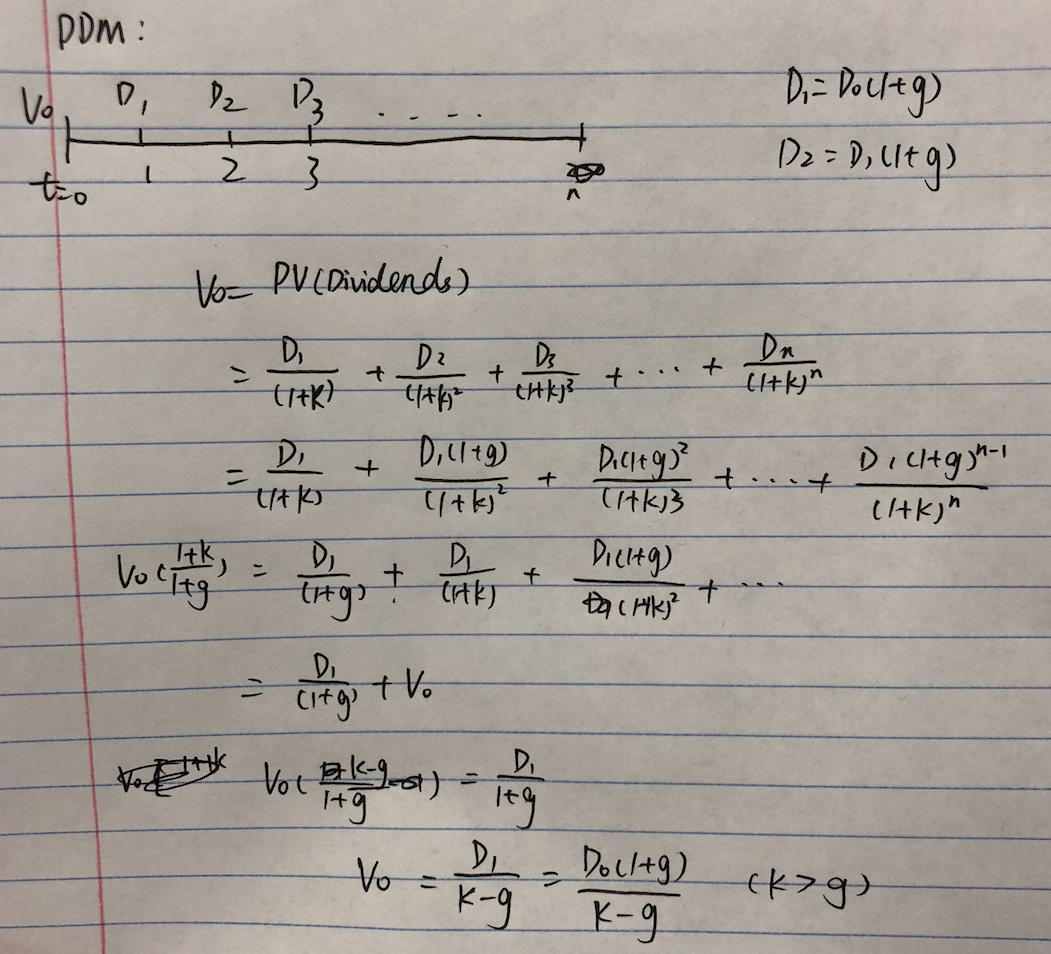 DDM:
V₀ D₁ D₂ D₃ . . . . D₁=D₀(1+g)
t=0 1 2 3 n D₂=D₁(1+g)
V₀= PV(Dividends)
= D₁/(1+K) + D₂/(1+k)² + D₃/(1+k)³ + ... + Dn/(1+k)ⁿ
= D₁/(1+k) + D₁(1+g)/(1+k)² + D₁(1+g)²/(1+k)3 + ... + D₁(1+g)ⁿ⁻¹/(1+k)ⁿ
V₀(1+k/1+g) = D₁/(1+g) + D₁/(1+k) + D₁(1+g)/(1+k)² + ...
= D₁/(1+g) + V₀
V₀(k-g/1+g) = D₁/1+g
V₀ = D₁/K-g = D₀(1+g)/K-g (K>g)